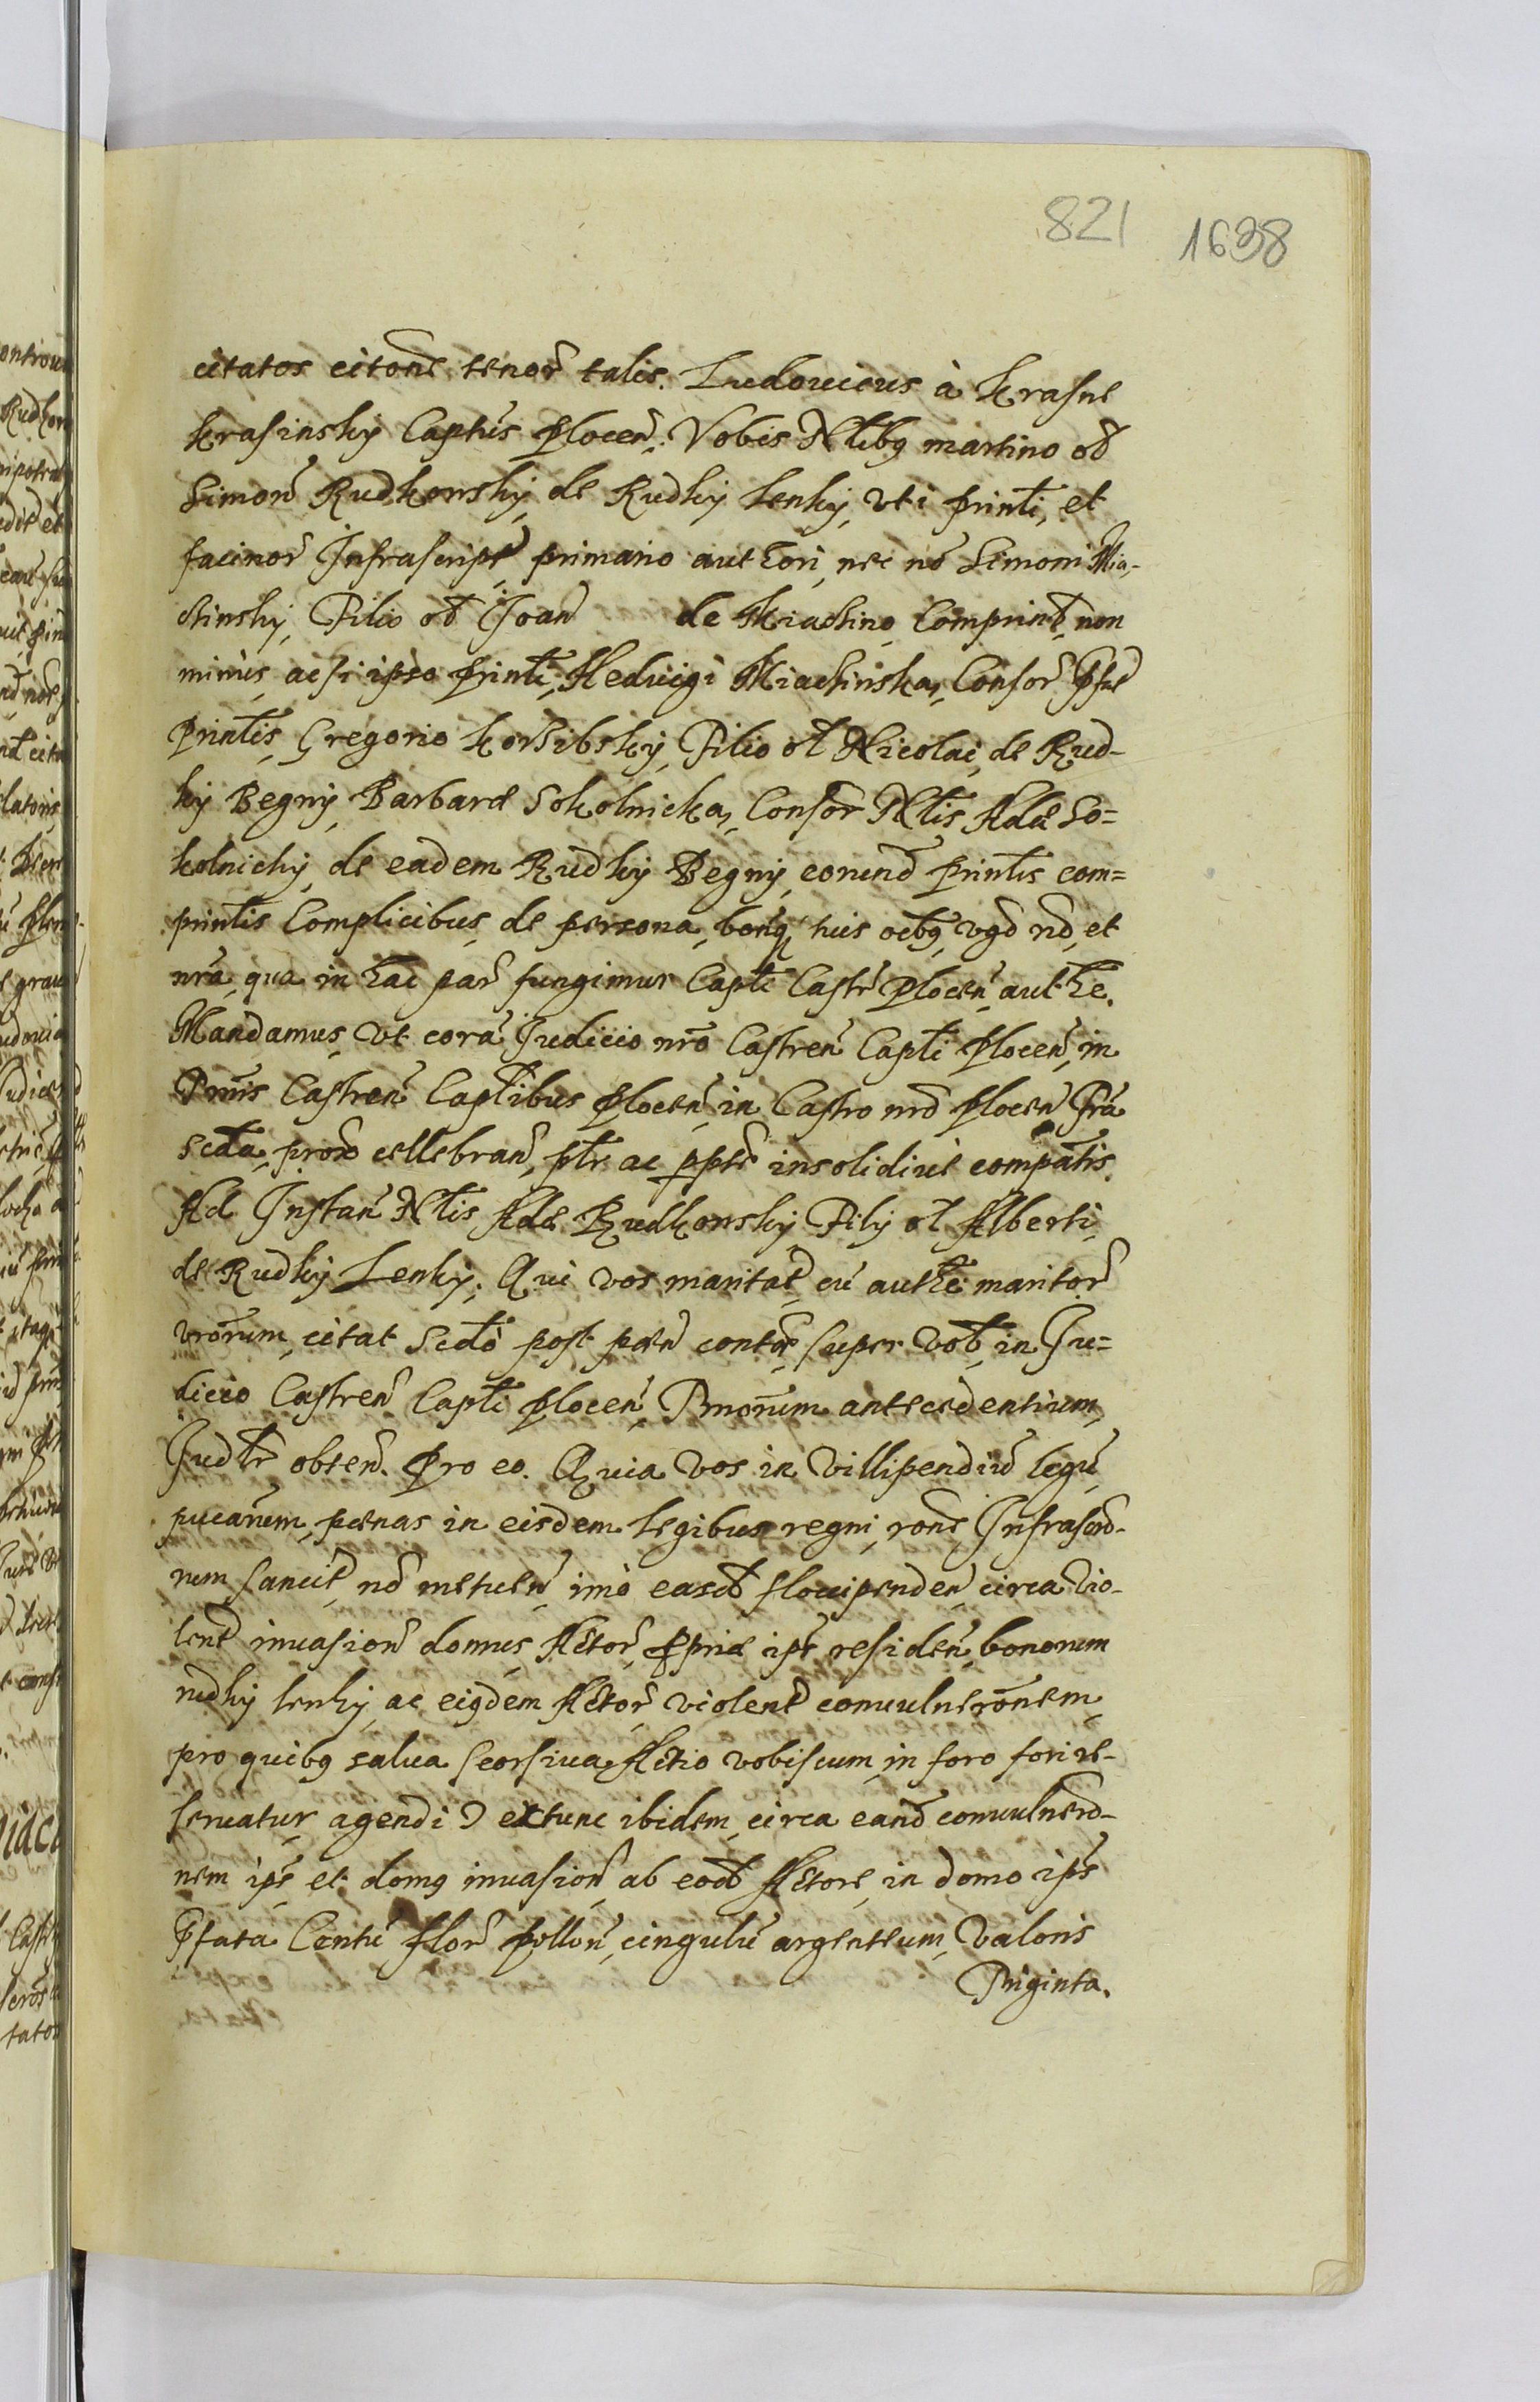 821 1638
citatos citone tenor talis. Ludovicus à Krasne
Krasinsky Captus Plocen. Vobis Nlibq martino oł
Simon Rudkowsky de Rudky Lenky, vti printi, et
facinor Infrascript primario authori, nec no Simoni Mia-
chinsky, Filio oł Joan de Miachino Comprint, non
minus, acsi ipso printi, Hedvigi Miachinska, Consor pfat
Printis, Gregorio Korzibsky, Filio ol Nicolai, de Rud-
ky Begny, Barbare Sokolnicka, Consor Nlis Adae So=
kolnicky, de eadem Rudky Begny, eorund printis com=
printis Complicibus, de persona, bonq huis oibq, vgd nd, et
nra, qua in hac par fungimur Capli Castr Plocen authe.
Mandamus, vt cora Judicio nro Castren Capli Plocen, in
Prmis Castren Capltibus Plocen, in Castro nro Plocen Fra
Scda, prox cellebran, ptr ac ppte insolidive compatis.
Ad Instan Nlis Adae Rudkowsky, Filij ol Alberti,
de Rudky Lenky. Qui vos maritat, cu authe maritor
vrorum, citat Scdo post paen contae, super vob, in Ju=
dicio Castren Capli Plocen, Prmorum antecedentium,
Judtr obten. Pro eo. Quia vos in villipendiu legu
pucarum, paenas in eisdem legibus regni, rone Infrascro-
rum sancit, no metuen, imo easd flocipenden, circa vio-
lent invasion domus Actor, pprie ips residen, bonorum
rudky lenky, ac eiqdem Actor violent convulneronem,
pro quibq salva seorsiva Actio vobiscum, in foro fori re-
servatur agendi extunc ibidem, circa eand convulnero-
nem ips et domq invasion, ab eod Actore, in domo ips
pfata Centu flor pollon, cingulu argenteum, valoris
Triginta.